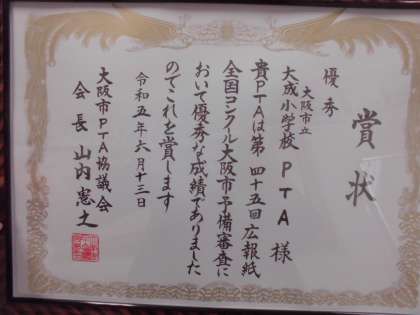 賞状
優秀
大阪市立
大成小学校 PTA 様
貴PTAは第四十五回広報紙
全国コンクール大阪市予備審査に
おいて優秀な成績でありました
のでこれを賞します
令和五年六月十三日
大阪市PTA協議会
会長 山内憲之